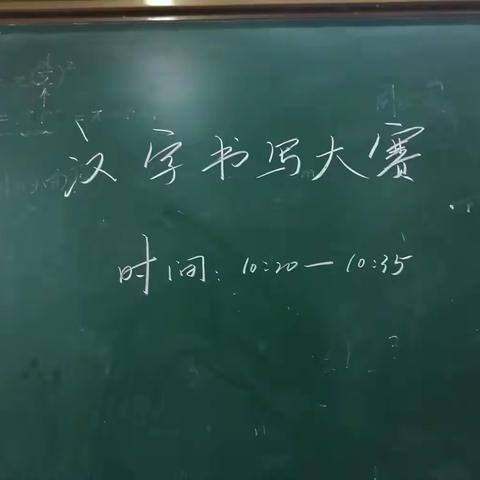 汉字书写大赛
时间:10:20—10:35